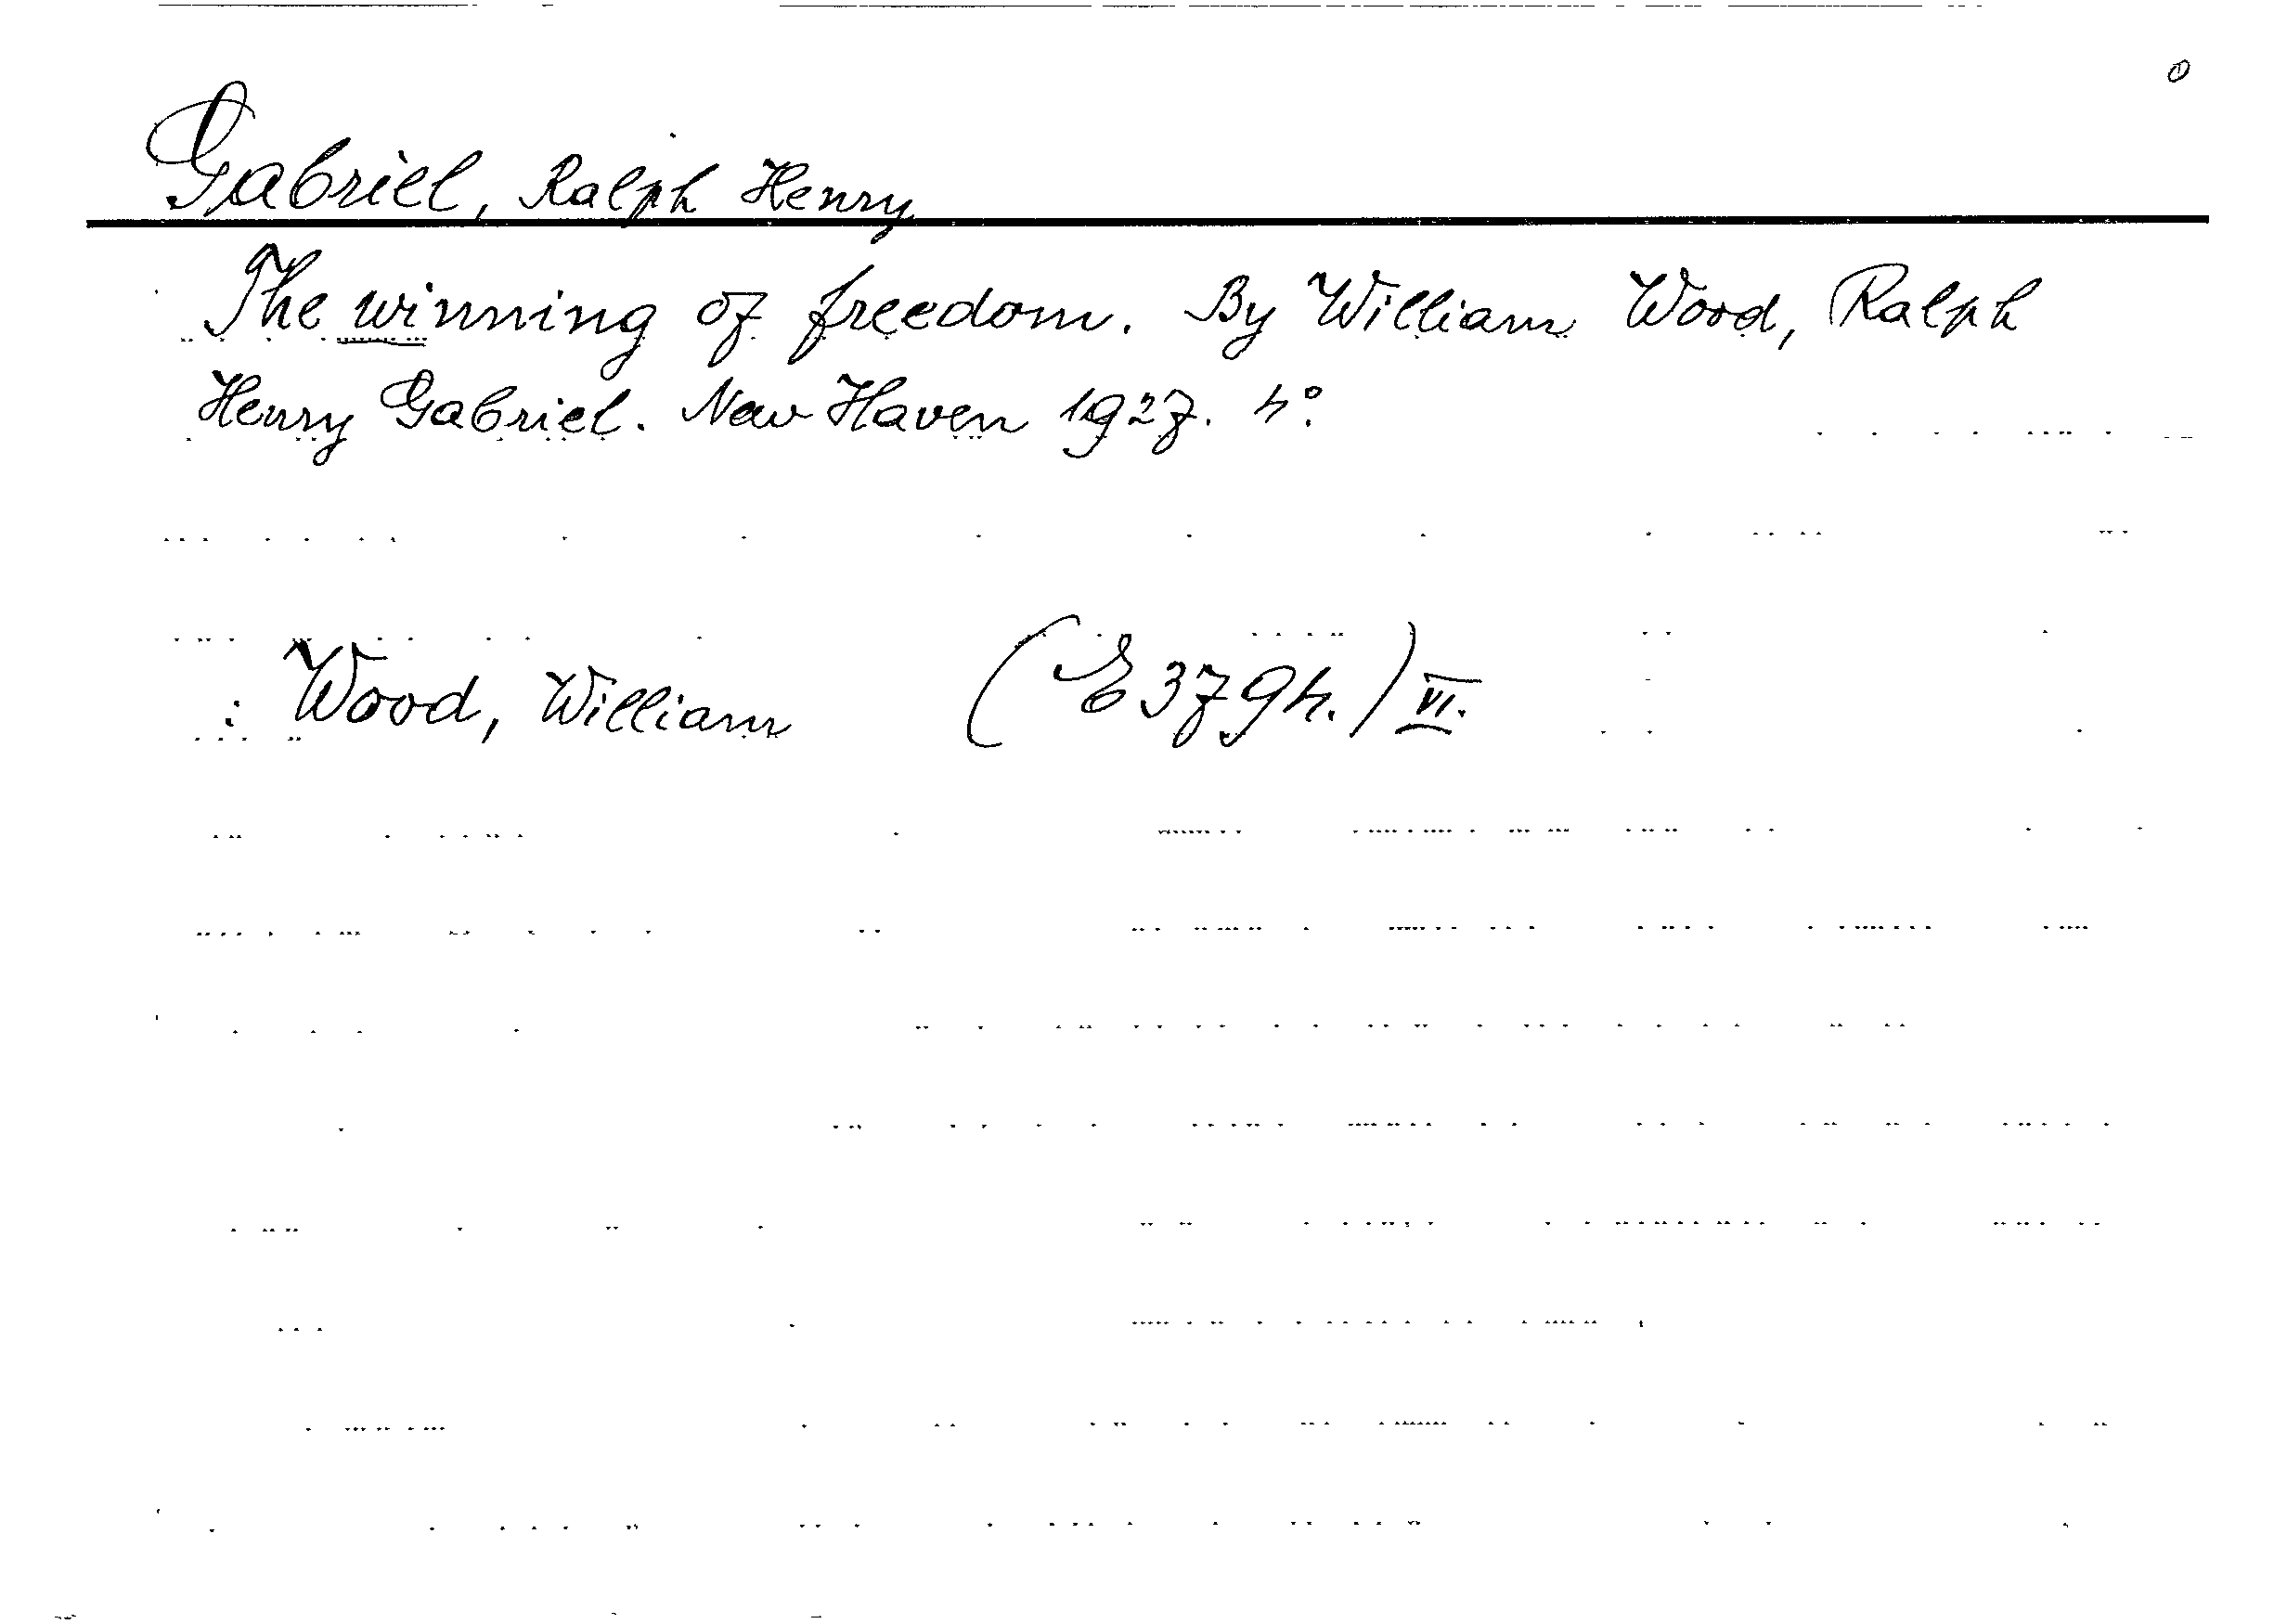 0
Gabriel, Ralph Henry
The winning of freedom. By William Wood, Ralph
Henry Gabriel. New Haven 1927. 4°.
: Wood, William (E 379h.) VI.